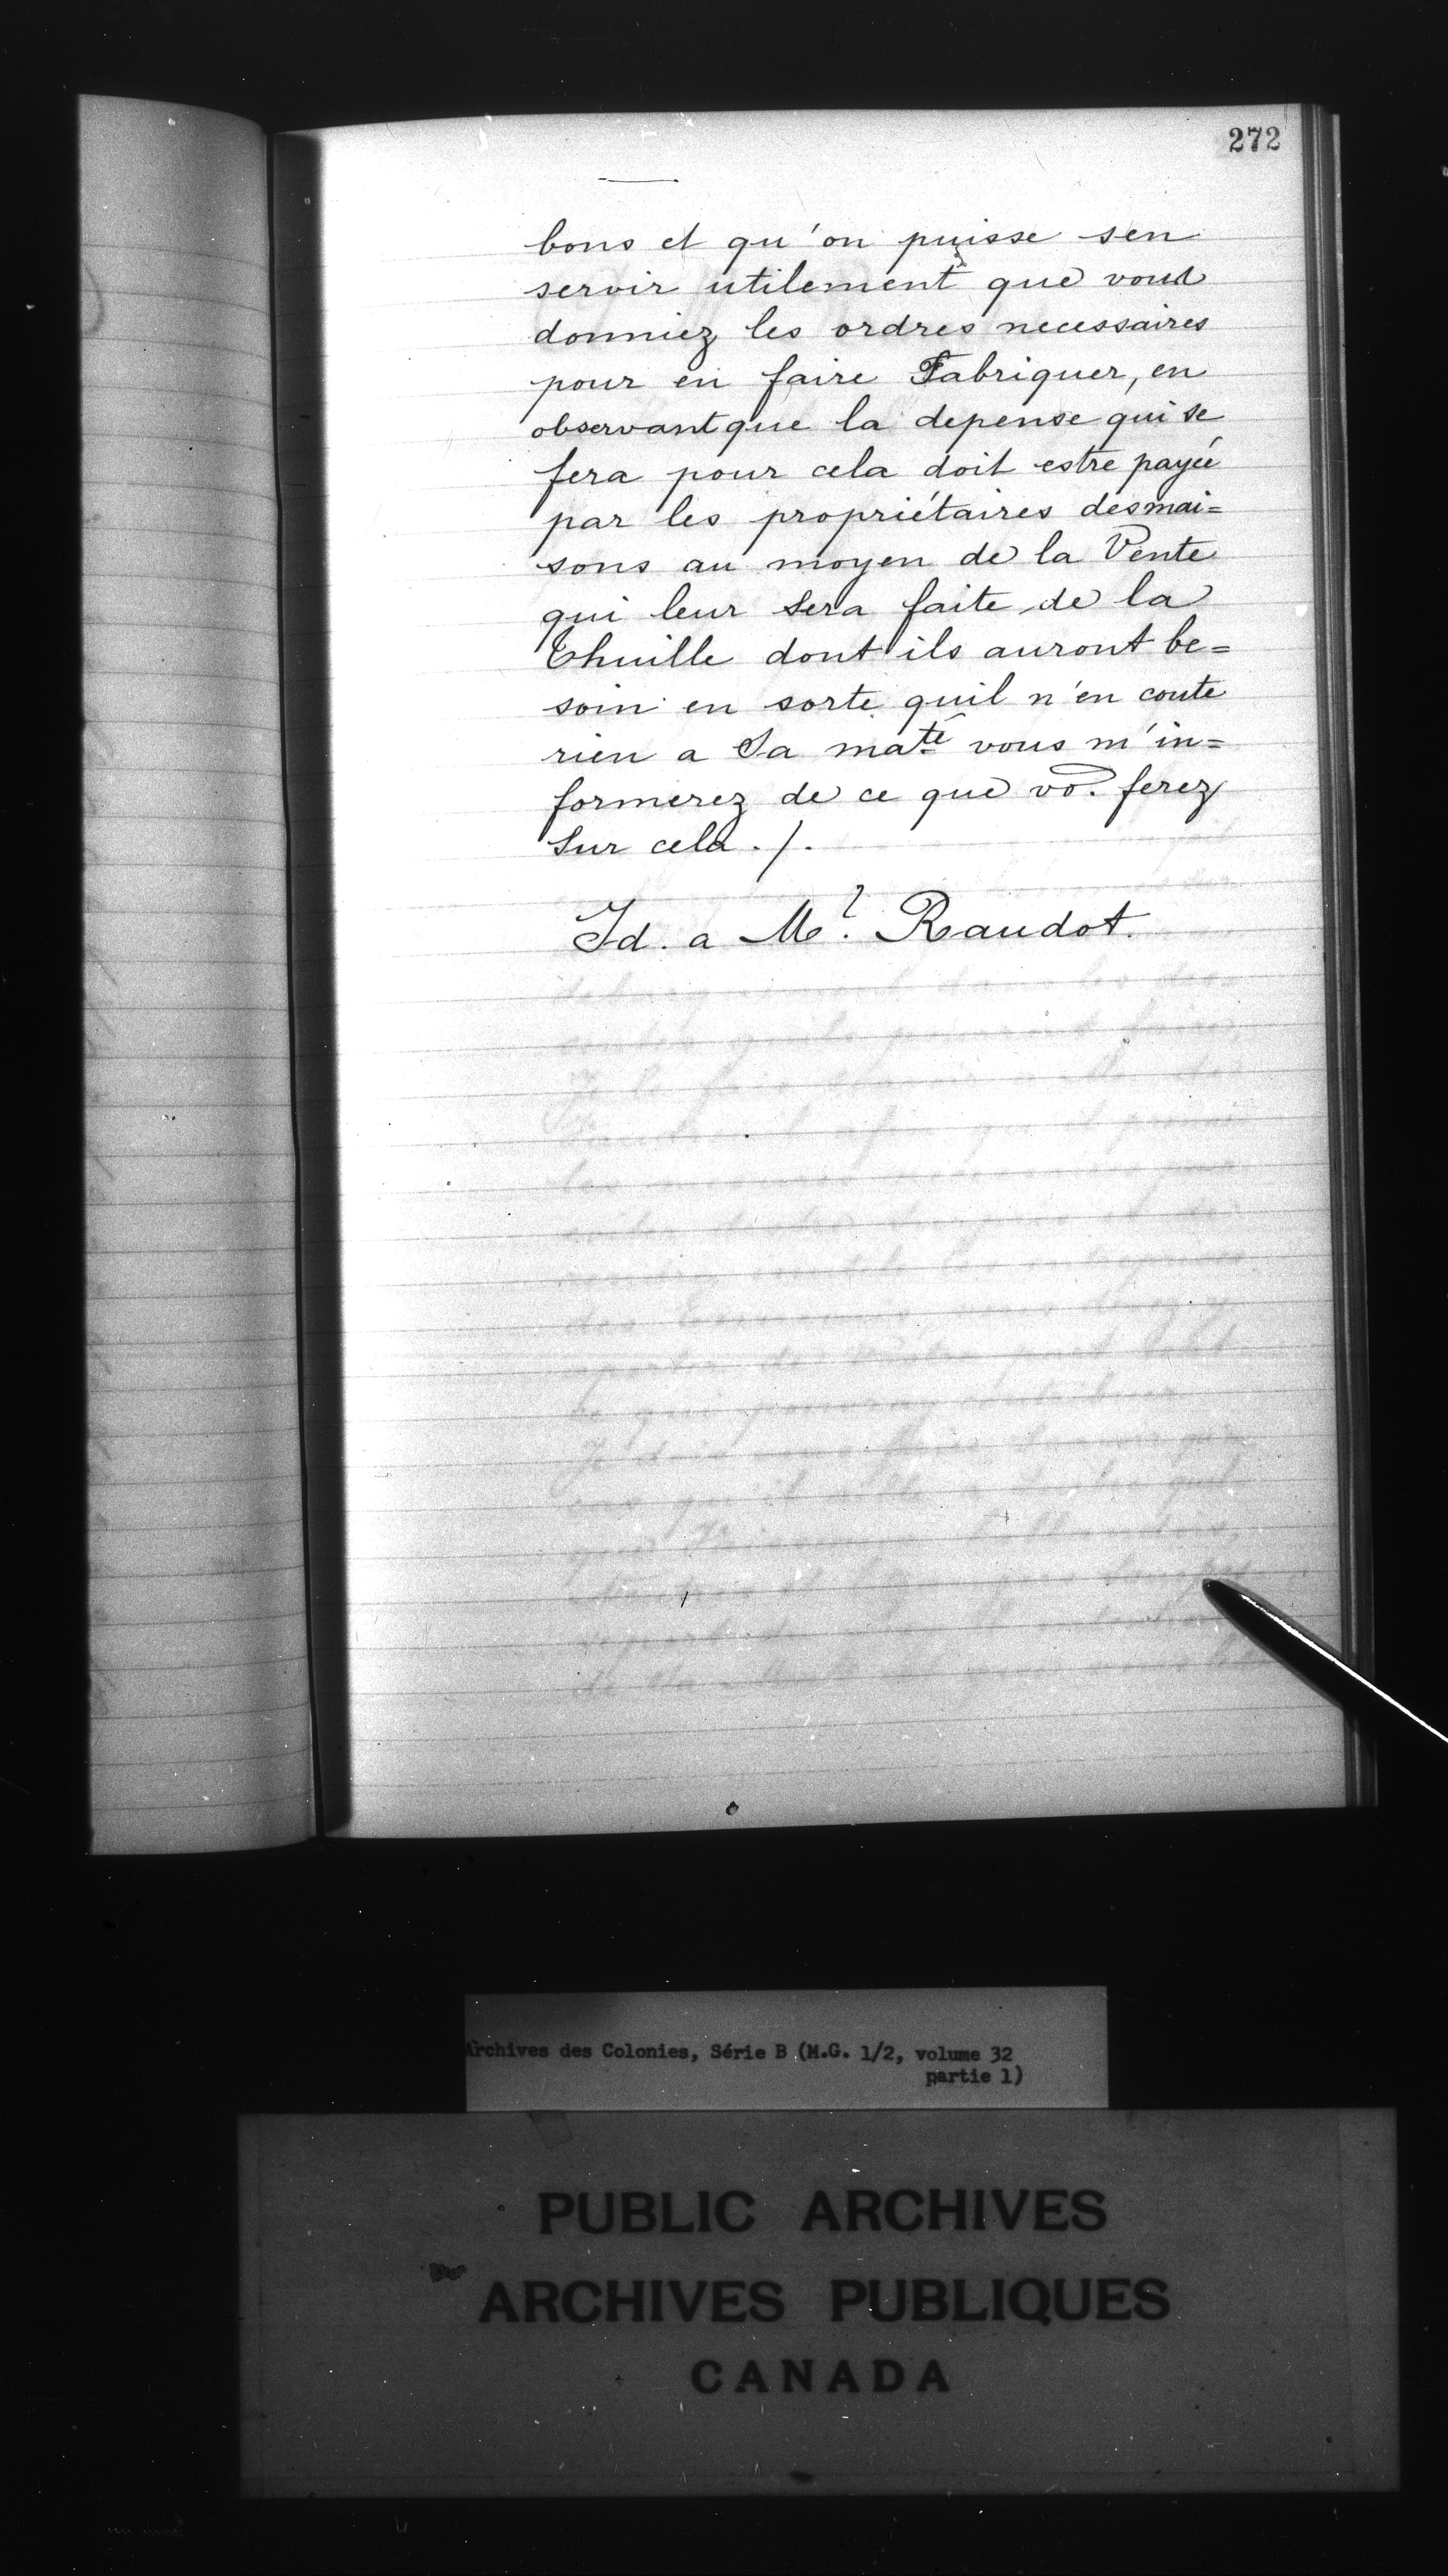 272
bons et qu'on puisse sen
servir utilement que vous
donniez les ordres necessaires
pour en faire Fabriquer, en
observant que la depense qui se
fera pour cela doit estre payée
par les propriétaires des mai=
sons au moyen de la Vente
qui leur Sera faite de la
Thuille dont ils auront be=
soin en sorte quil n'en coute
rien a Sa maté vous m'in=
formerez de ce que vo. ferez
Sur cela ./.
Id. a Mr. Raudot.
Archives des Colonies, Série B (M.G. 1/2, volume 32
partie 1)
PUBLIC ARCHIVES
ARCHIVES PUBLIQUES
CANADA